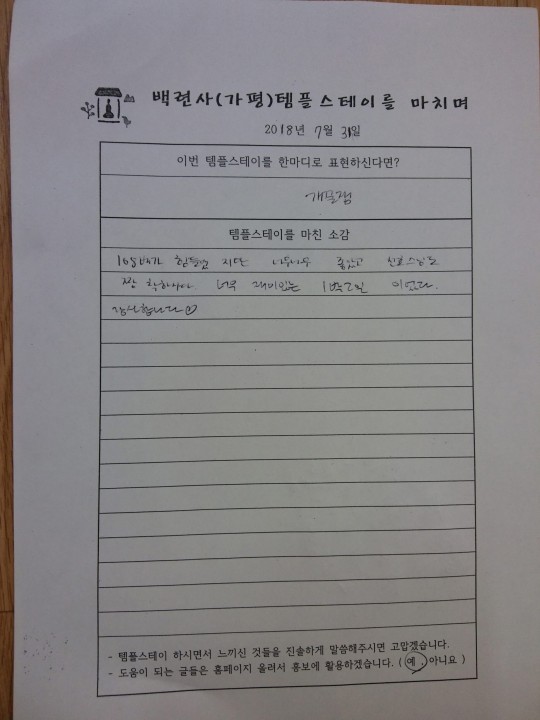 백련사(가평)템플스테이를 마치며
2018년 7월 31일
이번 템플스테이를 한마디로 표현하신다면?
개꿀잼
템플스테이를 마친 소감
108배가 힘들었지만 너무너무 좋았고
짱 착하셔서 너무 재미있는 1박2일 이었다.
감사합니다♡
- 템플스테이 하시면서 느끼신 것들을 진솔하게 말씀해주시면 고맙겠습니다.
- 도움이 되는 글들은 홈페이지 올려서 홍보에 활용하겠습니다. ( 예 , 아니요 )